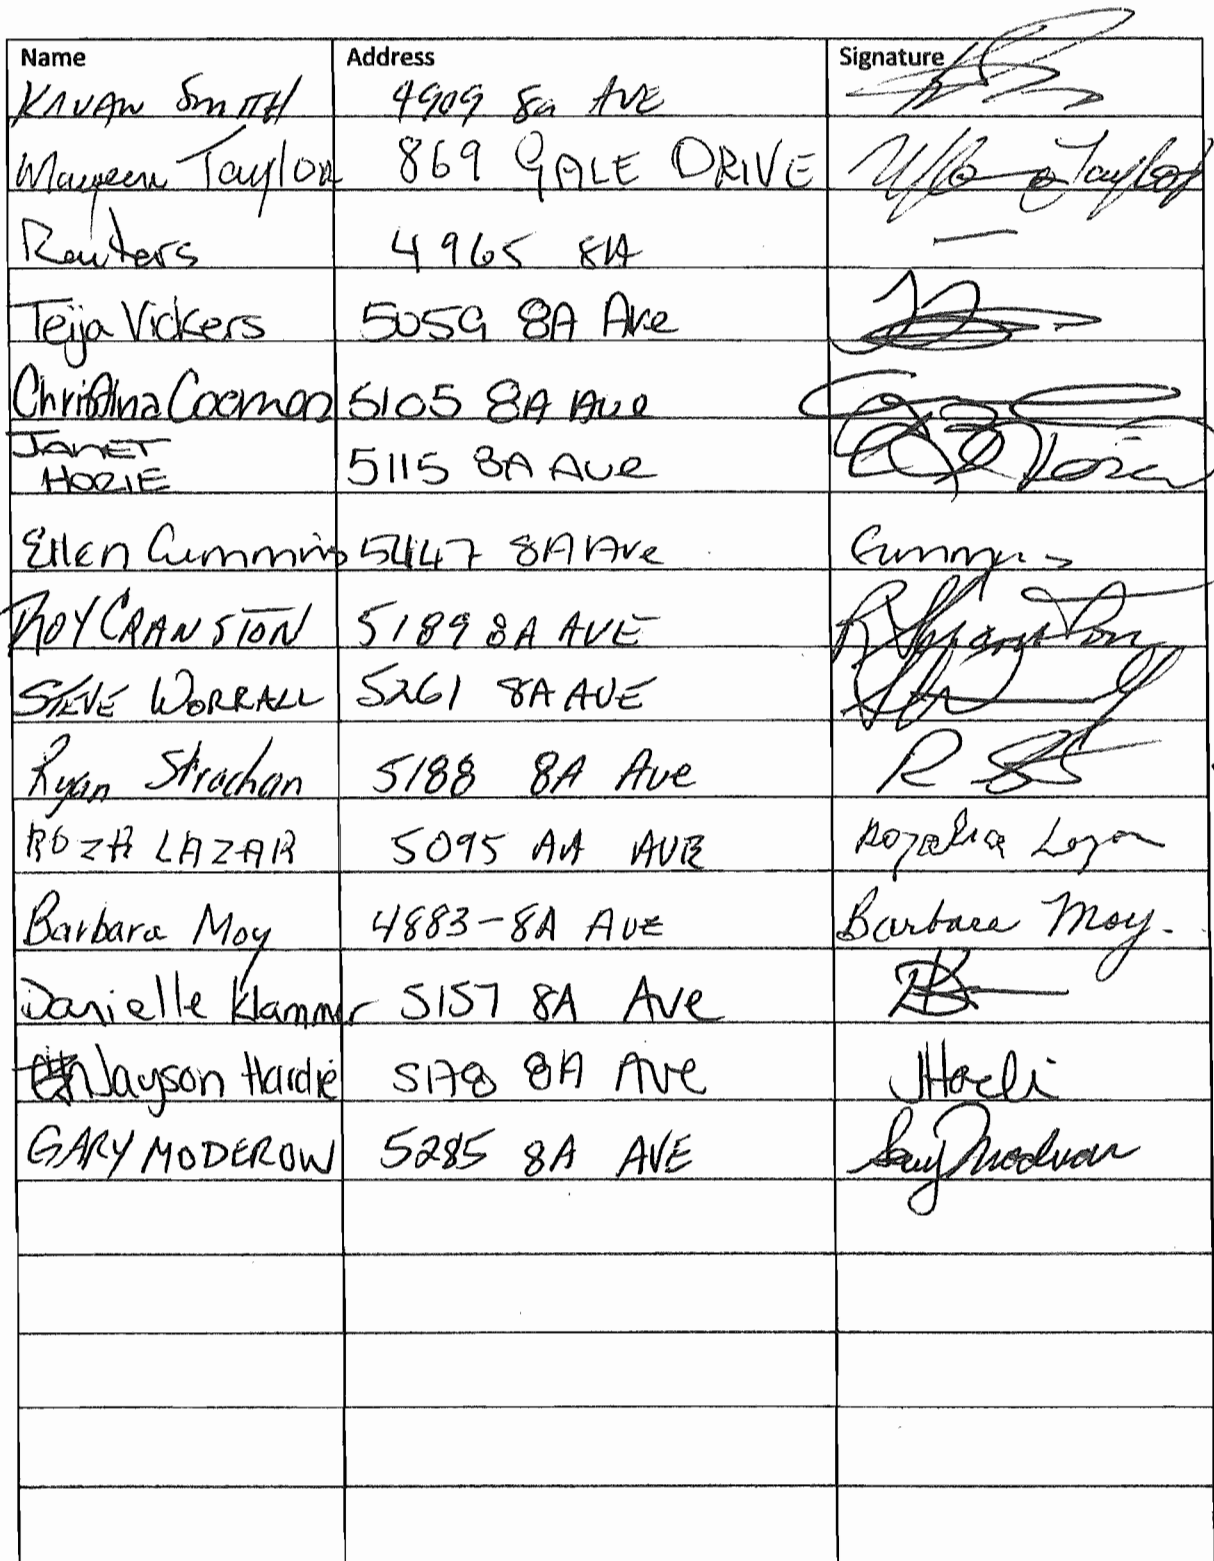 Name Address Signature
KAVAN SMITH 4909 8a AVE
Maureen Taylor 869 GALE DRIVE Taylor
Reuiters 4965 8A —
Teija Vickers 5059 8A Ave
Christina Cooman 5105 8A Ave
JANET
HORIE 5115 8A Ave Horie
Ellen Cummins 5447 8A Ave Cummins
ROY CRANSTON 5189 8A AVE R Cranston
STEVE WORRALL 5261 8A AVE
Ryan Strachan 5188 8A Ave R
ROZA LAZAR 5095 AA AVE
Barbara Moy 4883-8A AVE Barbara Moy.
Danielle Klammer 5157 8A Ave
Jayson Hardie 5178 8A Ave
GARY MODEROW 5285 8A AVE Gary Moderow